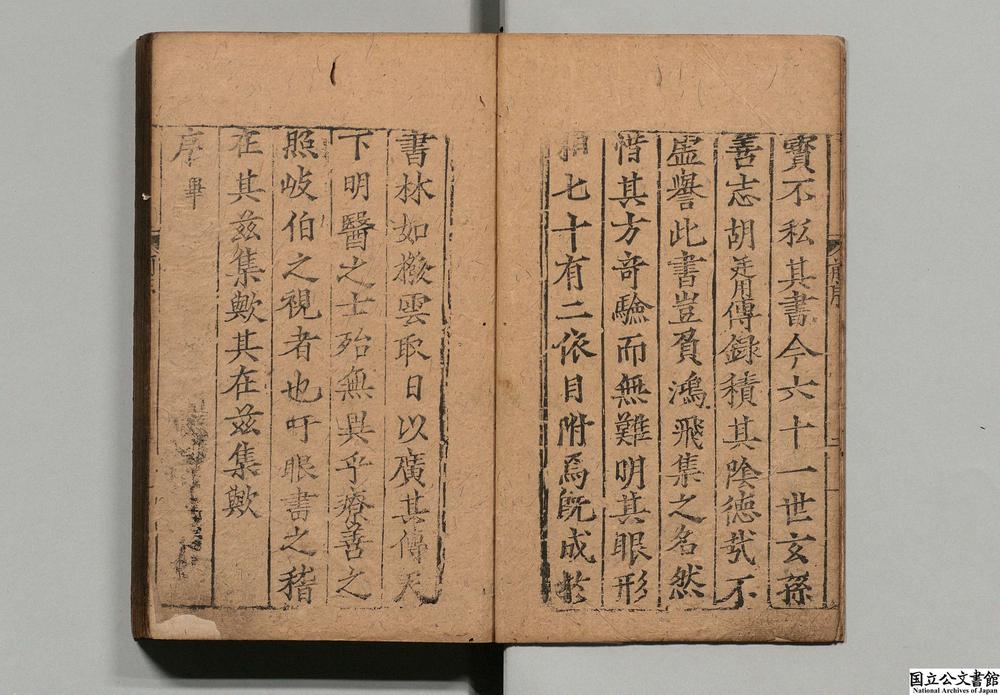 寳不私其書今六十一世玄孫
善志胡廷用傳録積其陰德哉不
虛譽此書豈負鴻飛集之名然
惜其方竒驗而無難明其眼形
七十有二依目附焉旣成於
書林如撥雲取日以廣其傳天
下明醫之士殆無異乎療善之
照岐伯之視者也吁眼書之稽
在其兹集歟其在兹集歟
序畢
前序
国立公文書館
National Archives of Japan